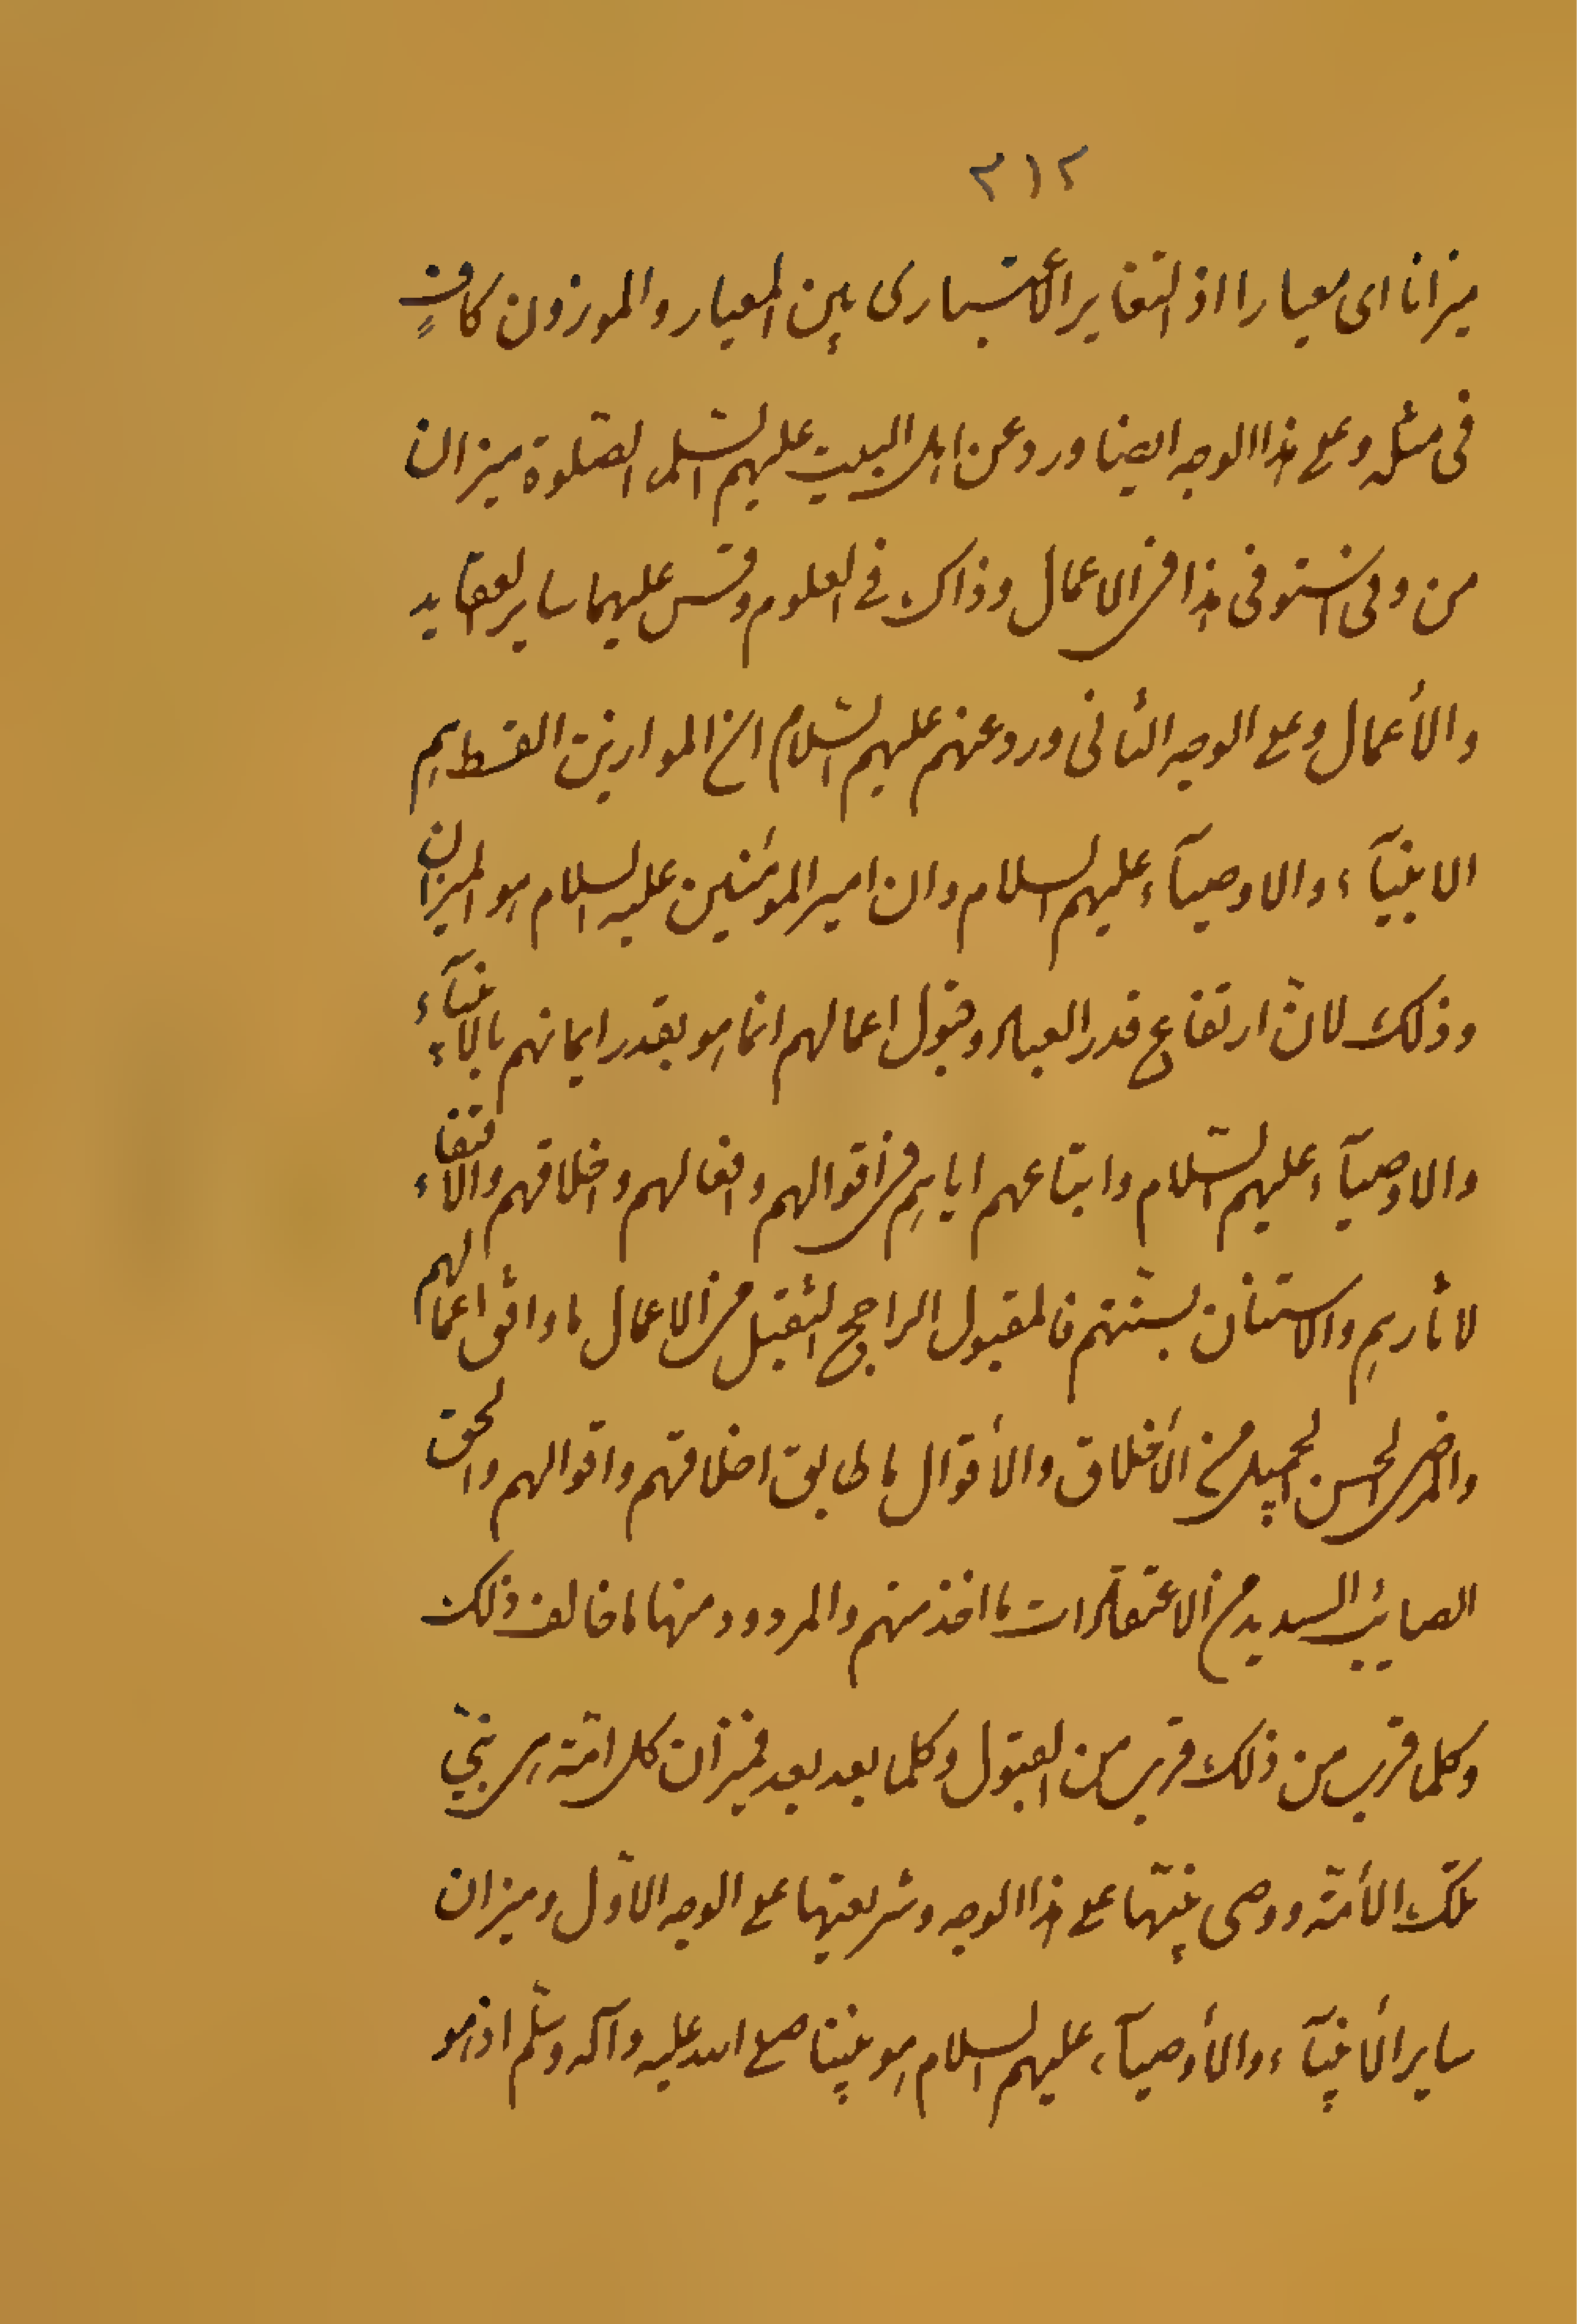 ٣١٢
ميزانا اى معيارا اذ التغاير الأعتبارى بين المعيار والموزون كافٍ
فى مثله وعلى هذا الوجه ايضا ورد عن اهل البيت عليهم السلم الصّلوة ميزان
من وفى استوفى هذا فى الاعمال وذاك فى العلوم وقس عليهما ساير العقايد
والأعمال وعلى الوجه الثانى ورد عنهم عليهم السّلام ان الموازين القسط هم
الانبيآء والاوصيآء عليهم السلام وان امير المؤمنين عليه السلام هو الميزان
وذلك لانّ ارتفاع قدر العباد وقبول اعمالهم انما هو بقدر ايمانهم بالانبيآء
والاوصيآء عليهم السّلام واتباعهم اياهم فى اقوالهم وافعالهم واخلاقهم والاقتفاء
لاثارهم والاستنان بسنّتهم فالمقبول الراجح الثقيل من الاعمال ما وافق اعمالهم
والمرضى الحسن الجميل من الأخلاق والأقوال ما طابق اخلاقهم واقوالهم والحق
الصايب السديد من الاعتقادات ما اخذ منهم والمردود منها ما خالف ذلك
وكلما قرب من ذلك قرب من القبول وكلما بعد بعد فميزان كل امّة هى نبىّ
تلك الأمّة ووصى نبيّها على هذا الوجه وشريعتها على الوجه الاوّل وميزان
ساير الأنبيآء والأوصيآء عليهم السلام هو نبينا صلى الله عليه وآله وسلّم اذ هو